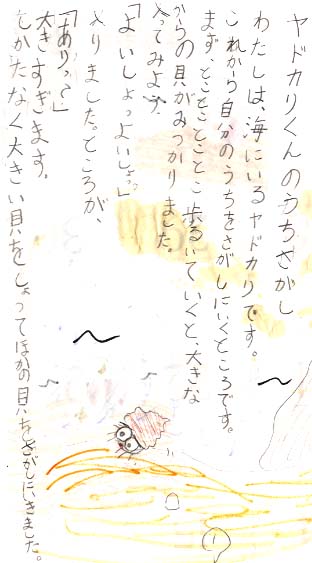 ヤドカリくんのうちさがし
わたしは、海にいるヤドカリです。
これから自分のうちをさがしにいくところです。
まず、とことことことこ歩るいていくと、大きな
からの貝がみつかりました。
入ってみよう。
「よいしょっよいしょっ」
入りました。ところが、
「ありっ。」
大きすぎます。
しかたなく大きい貝をしょってほかの貝をさがしにいきました。